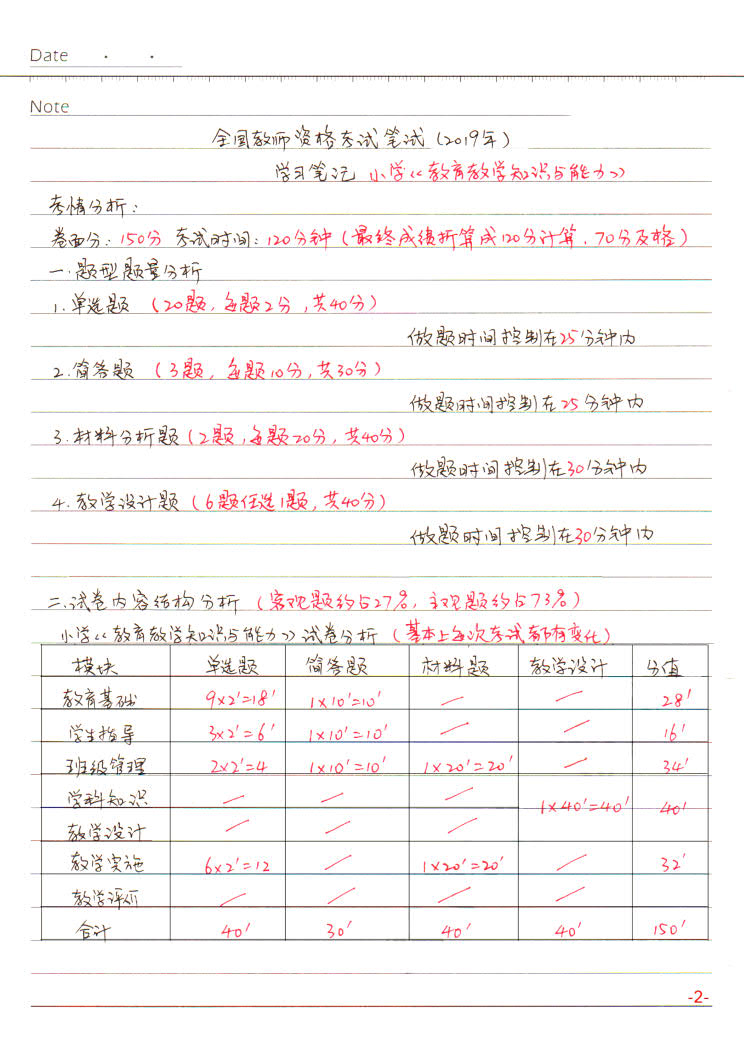 Date · ·
Note
全国教师资格考试笔试(2019年)
学习笔记 小学《教育教学知识与能力》
考情分析:
卷面分:150分 考试时间:120分钟(最终成绩折算成120分计算,70分及格)
一.题型题量分析
1.单选题 (20题,每题2分,共40分)
做题时间控制在25分钟内
2.简答题 (3题,每题10分,共30分)
做题时间控制在25分钟内
3.材料分析题(2题,每题20分,共40分)
做题时间控制在30分钟内
4.教学设计题(6题任选1题,共40分)
做题时间控制在30分钟内
二.试卷内容结构分析(客观题约占27%,主观题约占73%)
小学《教育教学知识与能力》试卷分析(基本上每次考试都有变化)
模块 单选题 简答题 材料题 教学设计 分值
教育基础 9×2'=18' 1×10'=10' / / 28'
学生指导 3×2'=6' 1×10'=10' / / 16'
班级管理 2×2'=4 1×10'=10' 1×20'=20' / 34'
学科知识 / / / 1×40'=40' 40'
教学设计 / / /
教学实施 6×2'=12 / 1×20'=20' / 32'
教学评价 / / / /
合计 40' 30' 40' 40' 150'
-2-